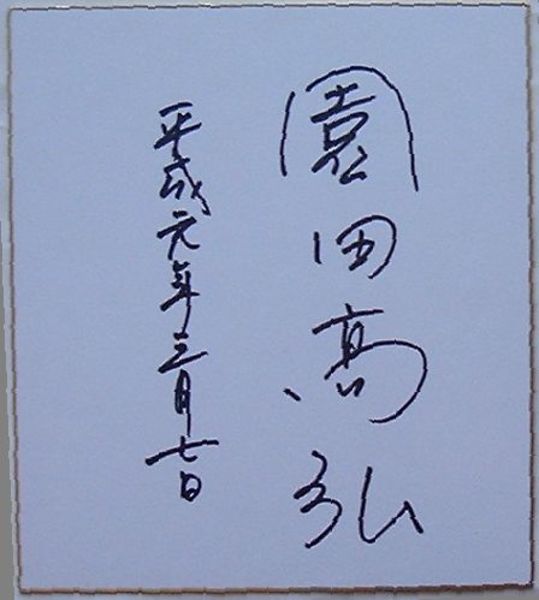 園田高弘
平成元年三月七日